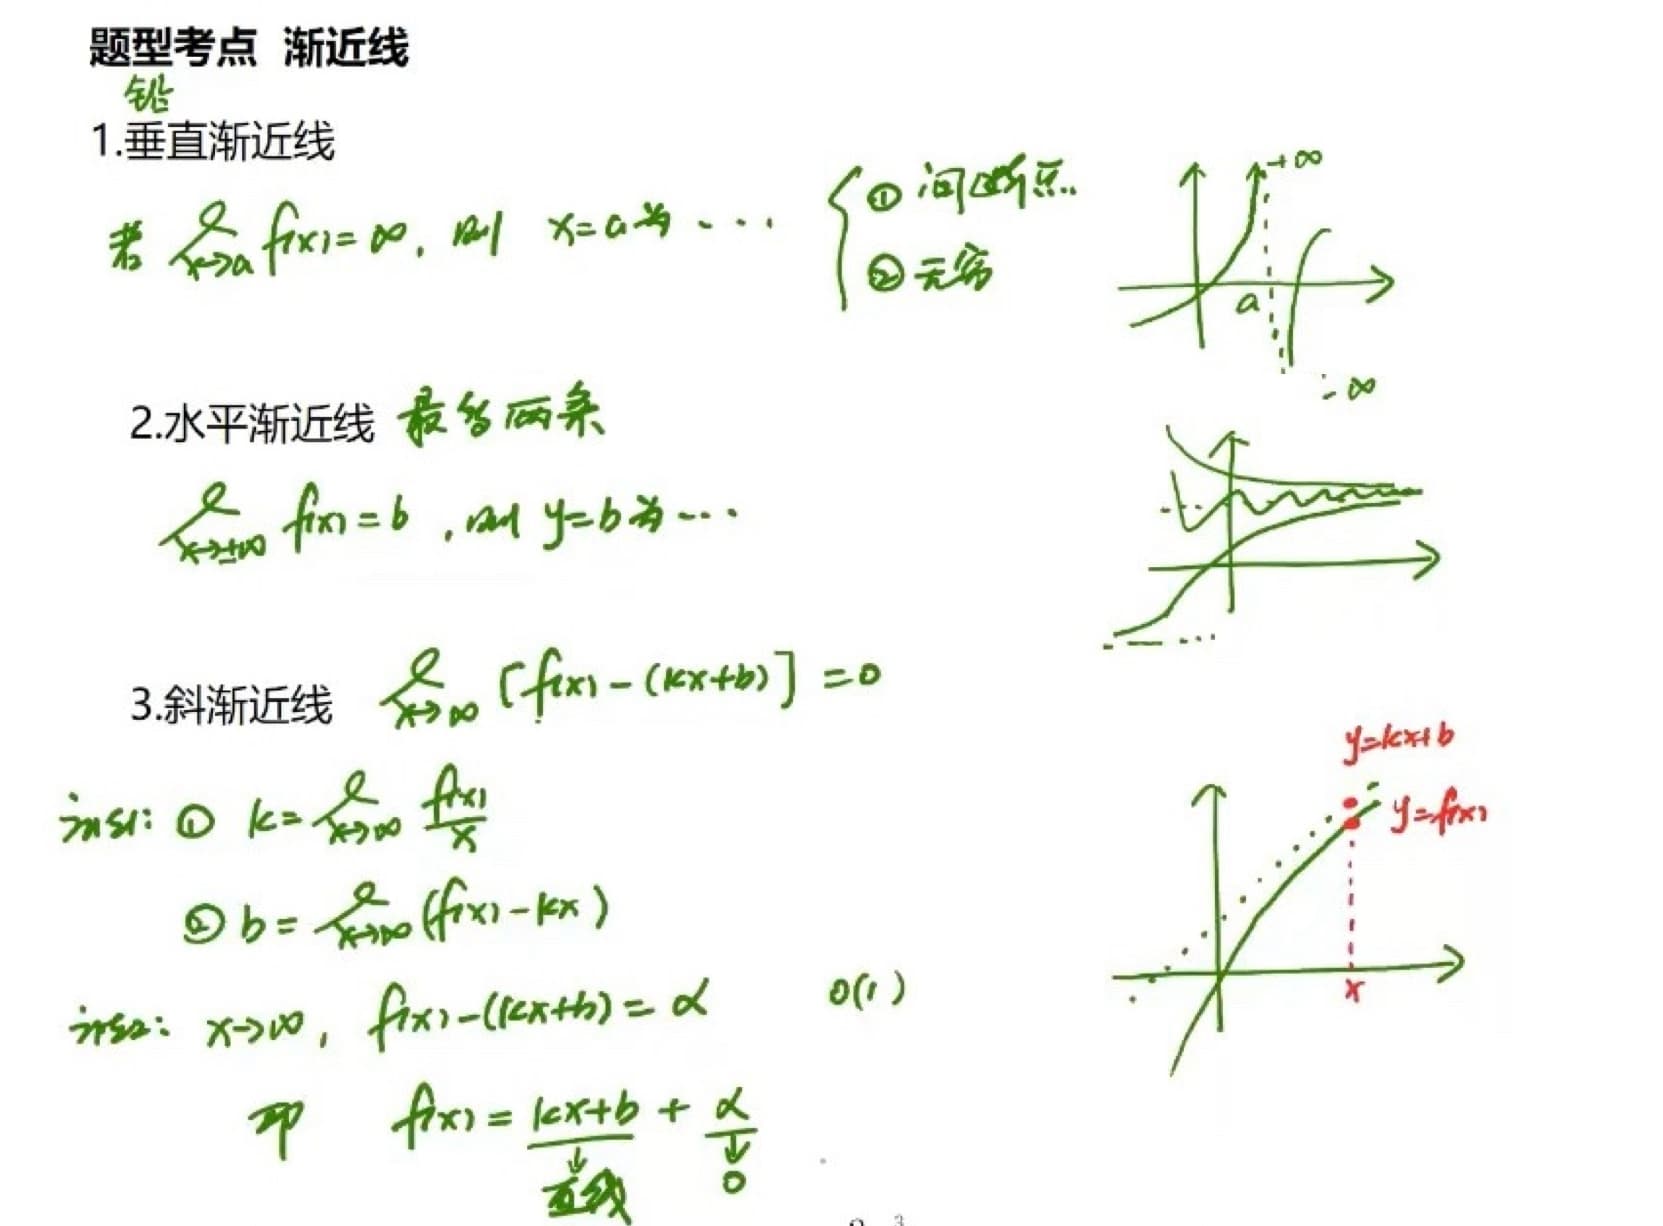 题型考点 渐近线
铅
1.垂直渐近线
若 lim x→a f(x)=∞, 则 x=a为...
① 间断点..
② 无穷
+∞
a
-∞
2.水平渐近线 最多两条
lim x→±∞ f(x)=b, 则 y=b为...
3.斜渐近线 lim x→∞ [f(x)-(kx+b)]=0
法1: ① k=lim x→∞ f(x)/x
② b=lim x→∞ (f(x)-kx)
y=kx+b
y=f(x)
x
法2: x→∞, f(x)-(kx+b)=α 0(1)
即 f(x)=kx+b+α
↓ ↓
直线 0